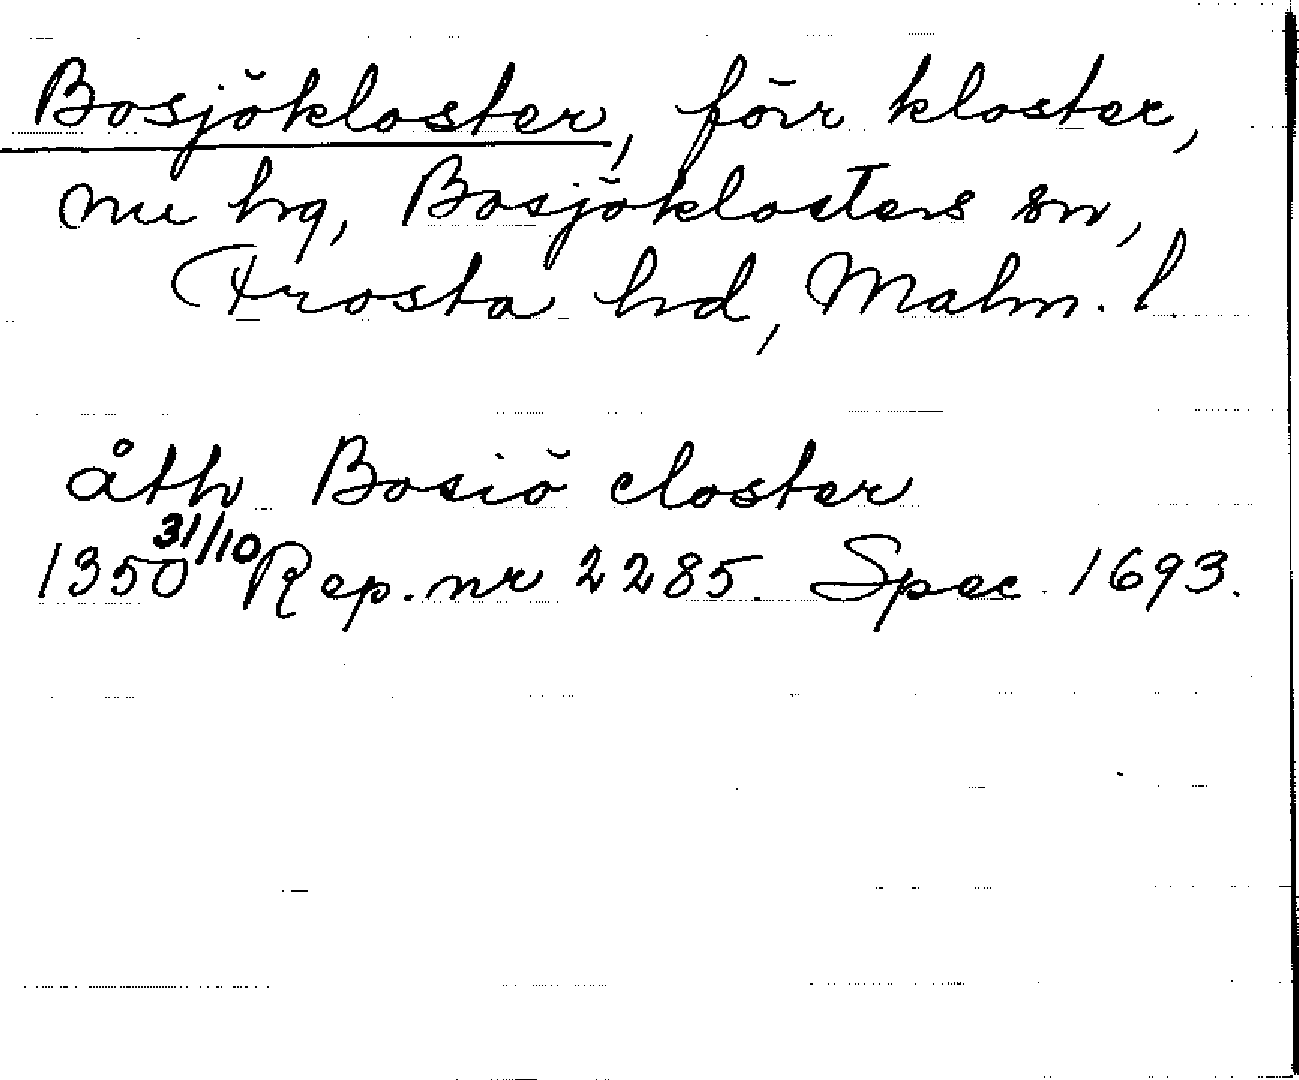 Bosjökloster, förr kloster,
nu hg, Bosjöklosters sn,
Frosta hd, Malm. l.
åth Bosiö closter
1350 31/10 Rep. nr 2285. Spec 1693.